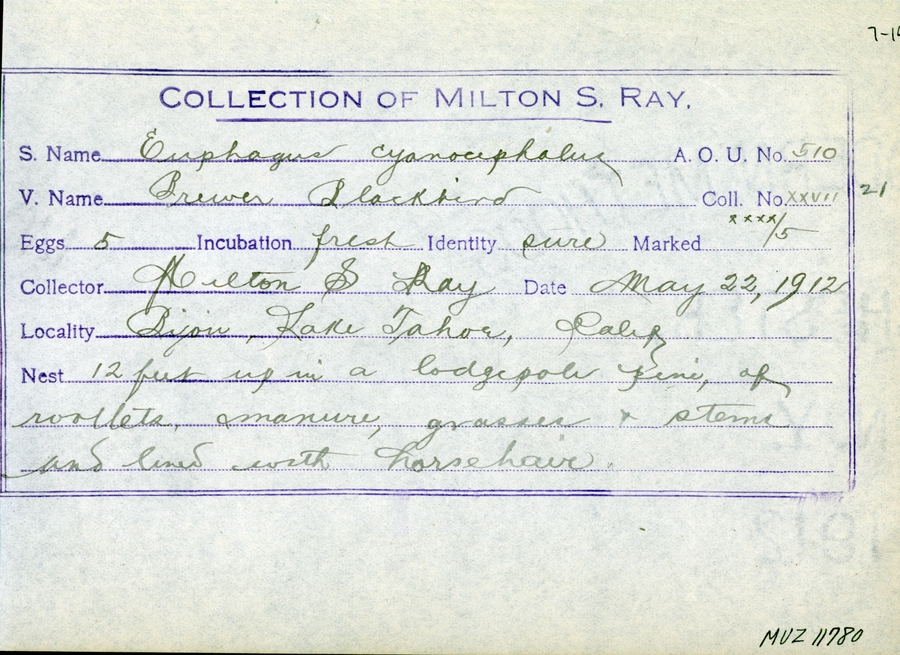 7-1
COLLECTION OF MILTON S. RAY.
S. Name Euphagus cyanocephalus A. O. U. No. 510
V. Name Brewer Blackbird Coll. No. XXVII 21
xxxx/5
Eggs 5 Incubation fresh Identity sure Marked
Collector Milton S Ray Date May 22, 1912
Locality Bijou, Lake Tahoe, Calif
Nest 12 feet up in a lodgepole pine, of
rootlets, manure, grasses & stems
and lined with horsehair.
MVZ 11780